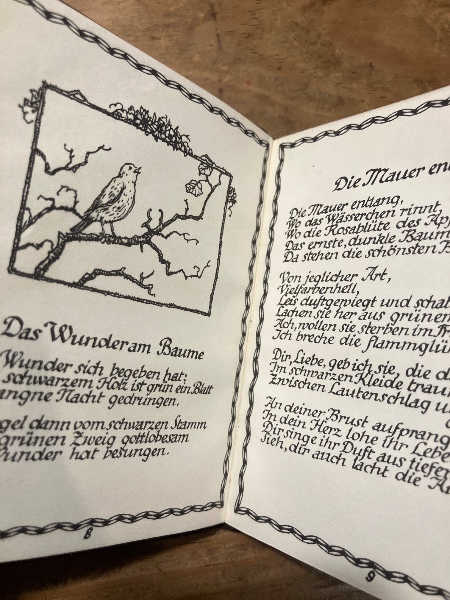 Das Wunder am Baume
Wunder sich begeben hat:
schwarzem Holz ist grün ein Blatt
Nacht gedrungen.
dann vom schwarzen Stamm
grünen Zweig gottlobesam
hat besungen.
8
Die Mauer
Die Mauer entlang,
Wo das Wässerchen rinnt,
Wo die Rosablüte des
Das ernste, dunkle
Da stehen die schönsten
Von jeglicher Art,
Vielfarbenhell,
Leis duftgewiegt und
Lachen sie her aus grünem
Ach, wollen sie sterben im
Ich breche die
Dir, Liebe, geb ich sie, die
Im schwarzen Kleide
Zwischen Lautenschlag
An deiner Brust
In dein Herz lohe ihr
Dir singe ihr Duft aus
Sieh, dir auch lacht die
9